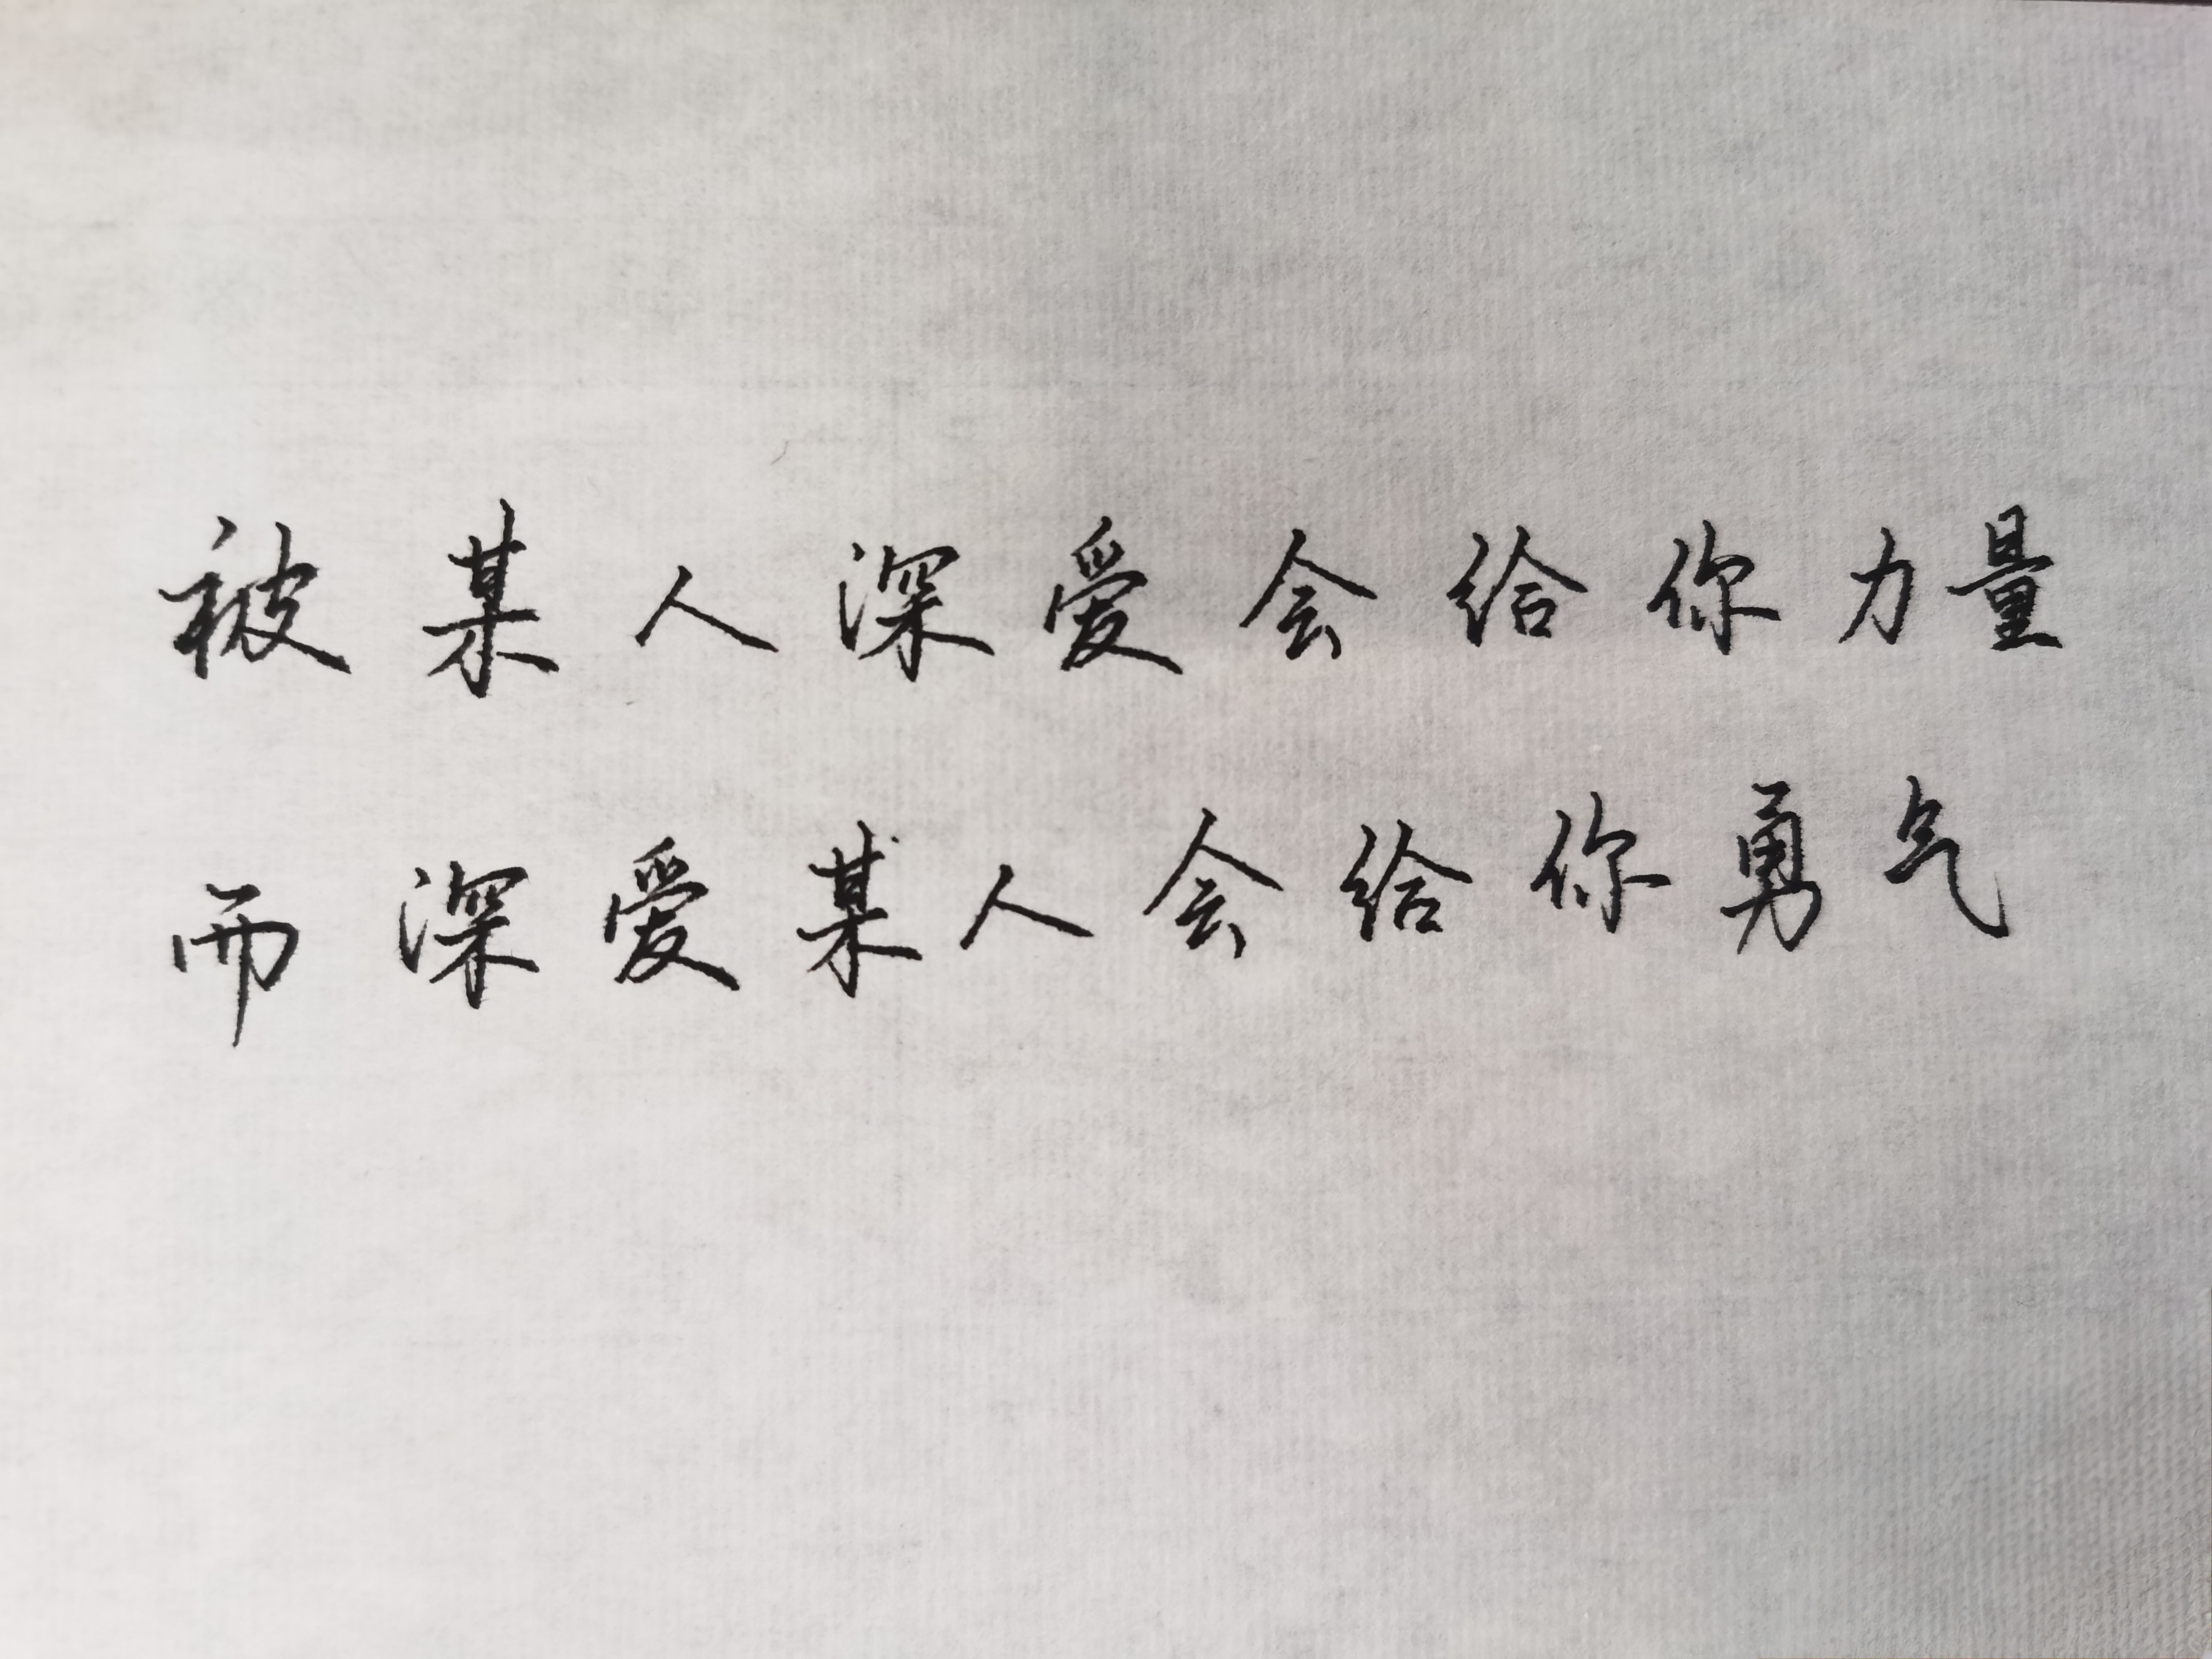 被某人深爱会给你力量
而深爱某人会给你勇气